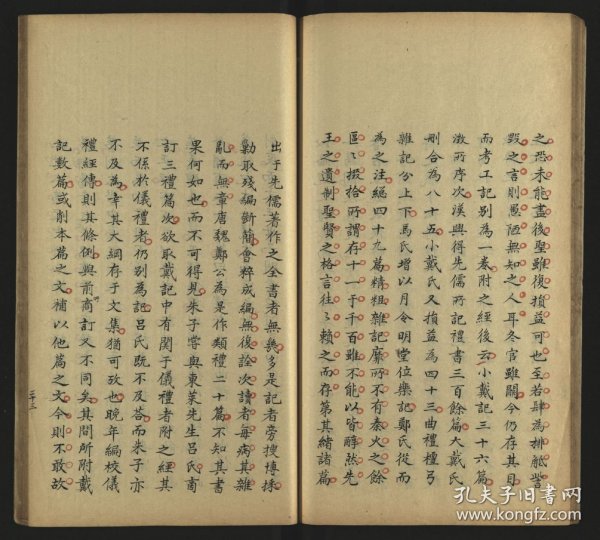 之恐未能盡後聖雖復損益可也至若肆為排觝訾
毀之言則愚陋無知之人耳冬官雖闕今仍存其目
而考工記別為一卷附之經後云小戴記三十六篇
澂所序次漢興得先儒所記禮書三百餘篇大戴氏
刪合為八十五小戴氏又損益為四十三曲禮檀弓
雜記分上下馬氏增以月令明堂位樂記鄭氏從而
為之注總四十九篇精粗雜記靡所不有秦火之餘
區〻掇拾所謂存十一于千百雖不能以皆醇然先
王之遺制聖賢之格言往〻賴之而存第其諸篇
出于先儒著作之全書者無幾多是記者旁搜博採
勦取殘編斷簡會粹成編無復詮次讀者每病其雜
亂而無章唐魏鄭公為是作類禮二十篇不知其書
果何如也而不可得見朱子嘗與東萊先生呂氏商
訂三禮篇次欲取戴記中有關于儀禮者附之經其
不係於儀禮者仍別為記呂氏既不及答而朱子亦
不及為幸其大綱存于文集猶可攷也晚年編校儀
禮經傳則其條例與前商訂又不同矣其間所附戴
記數篇或削本篇之文補以他篇之文今則不敢故
三十三
孔夫子旧書网
www.kongfz.com